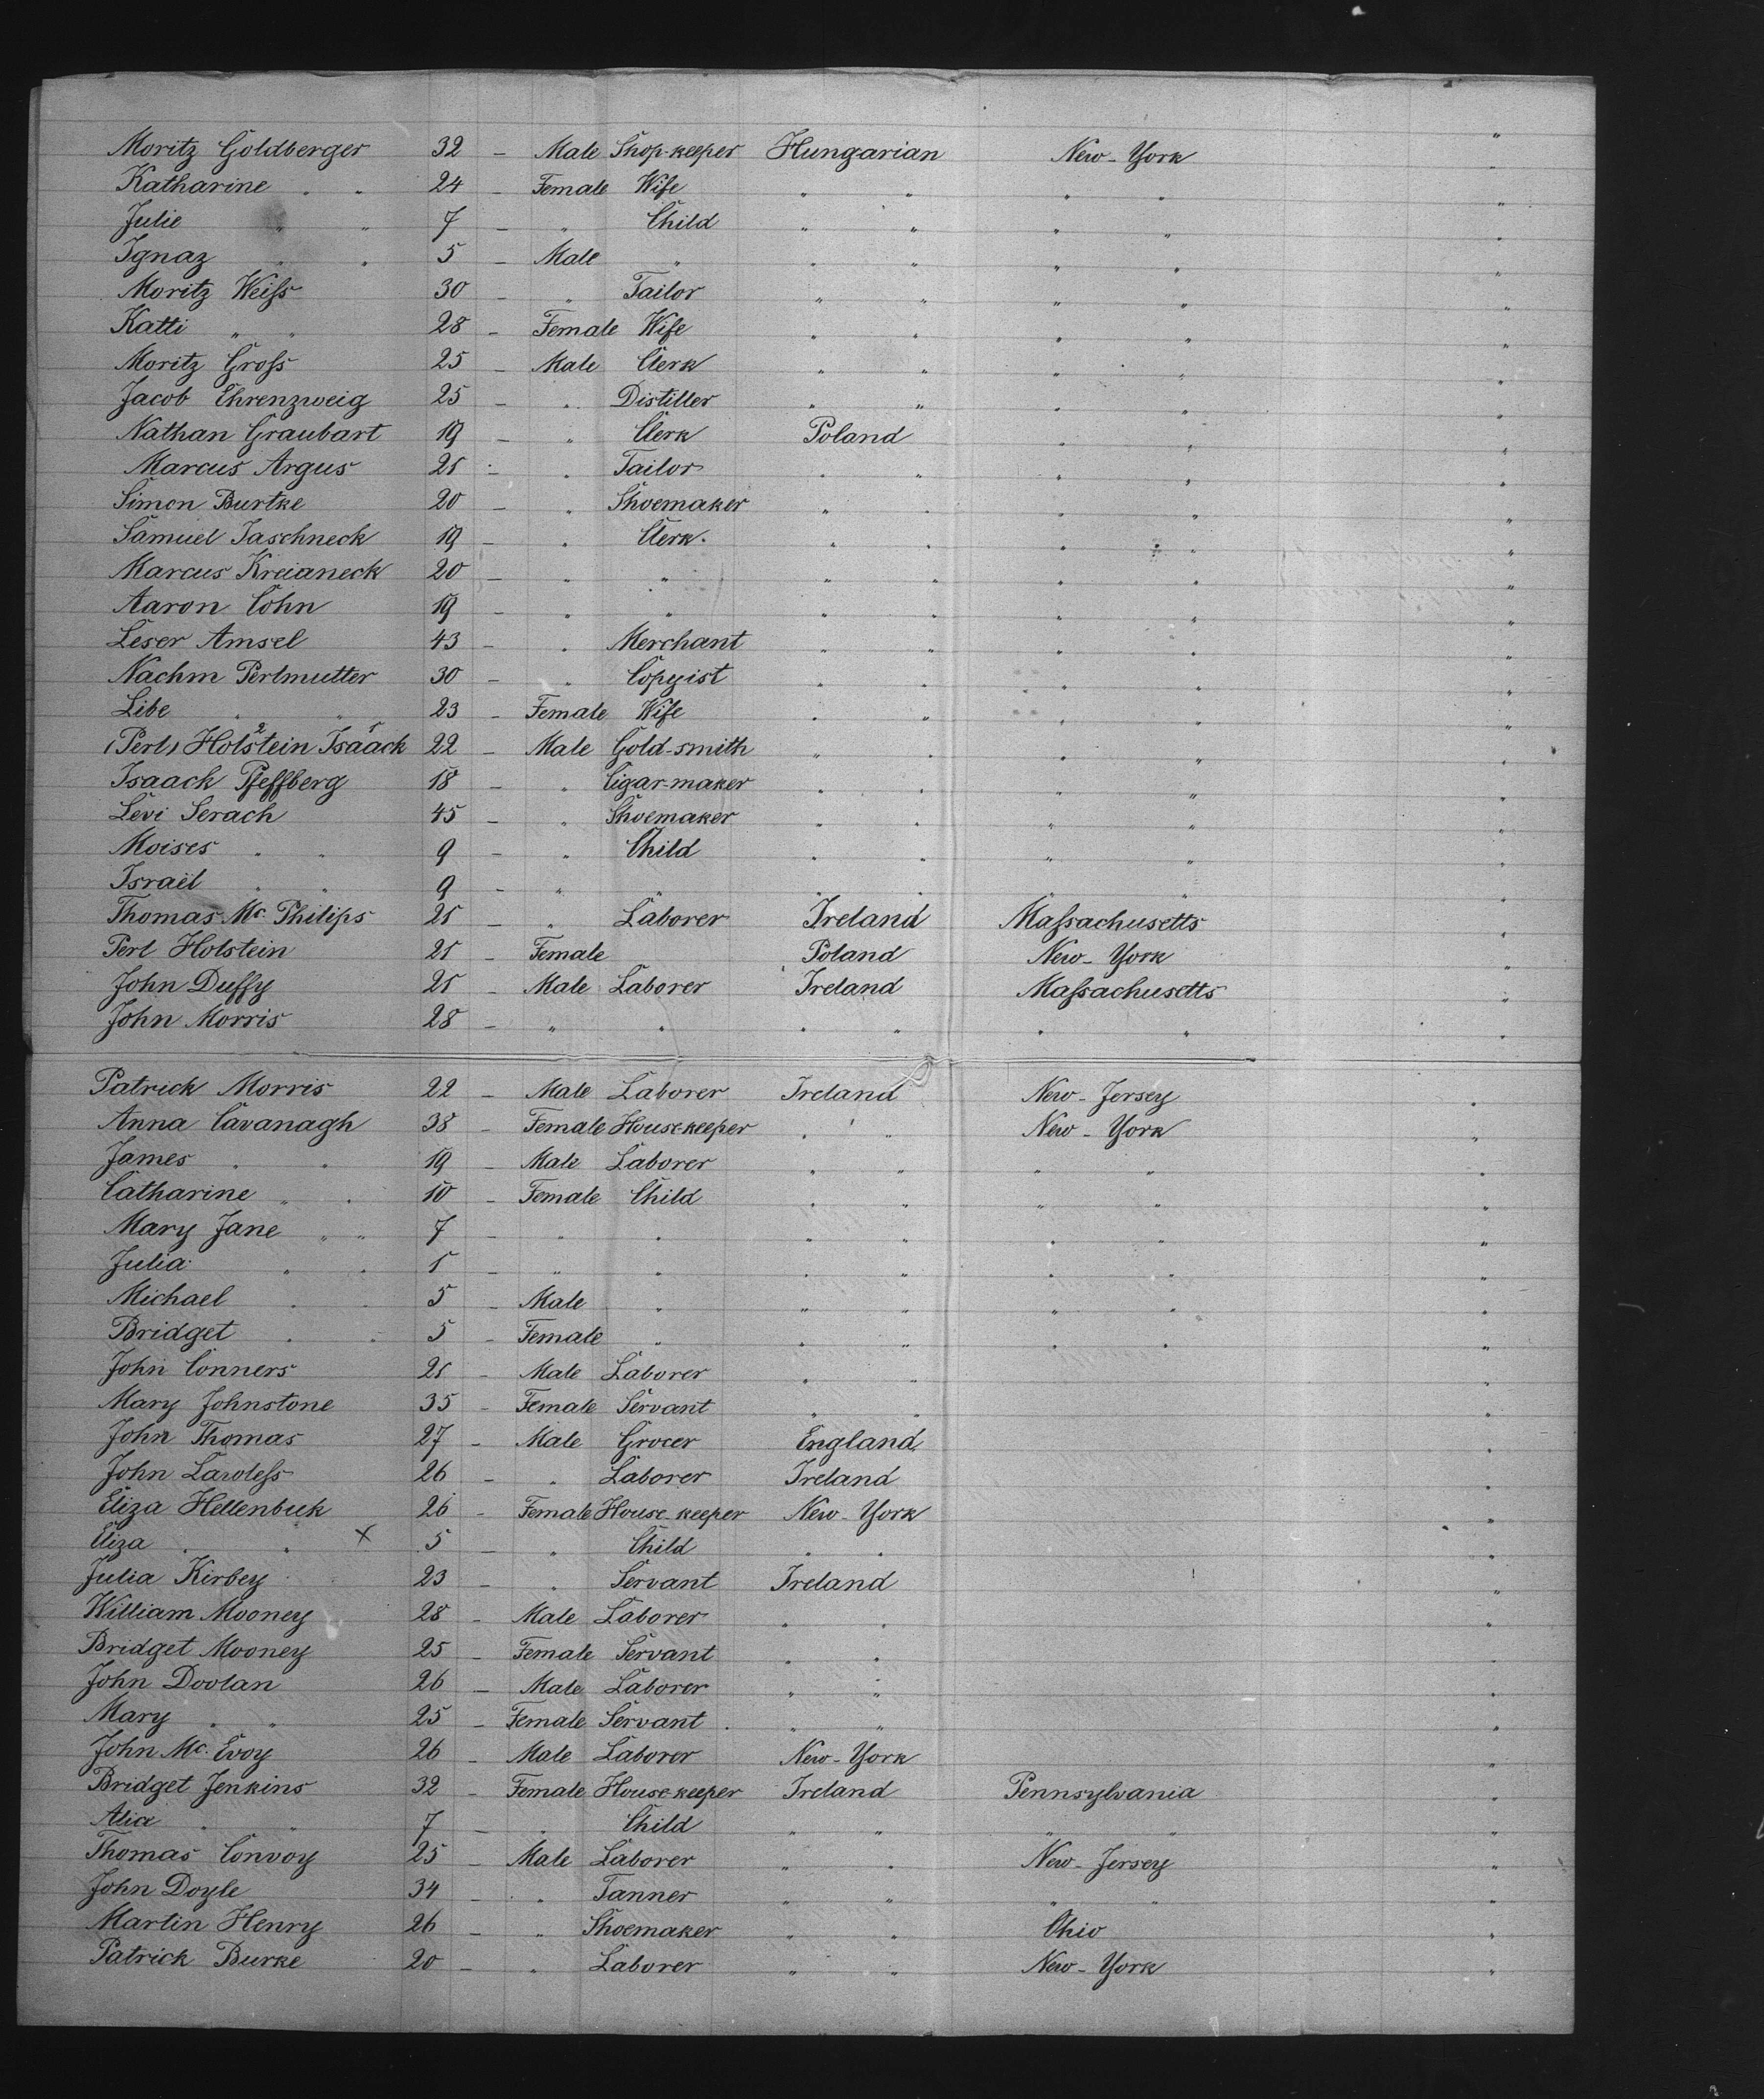 Moritz Goldberger 32 – Male Shop-keeper Hungarian New-York "
Katharine " " 24 – Female Wife " " " " "
Julie " " 7 – " Child " " " " "
Ignaz " " 5 – Male " " " " " "
Moritz Weiſs 30 – " Tailor " " " " "
Katti " " 28 – Female Wife " " " " "
Moritz Groſs 25 – Male Clerk " " " " "
Jacob Ehrenzweig 25 – " Distiller " " " " "
Nathan Graubart 19 – " Clerk Poland " " "
Marcus Argus 21 – " Tailor " " " " "
Simon Burtke 20 – " Shoemaker " " " " "
Samuel Jaschneck 19 – " Clerk. " " " " "
Marcus Kreianeck 20 – " " " " " " "
Aaron Cohn 19 – " " " " " " "
Leser Amsel 43 – " Merchant " " " " "
Nachm Perlmutter 30 – " Copyist " " " " "
Libe " " 23 – Female Wife " " " " "
(Perl) Holstein Isaack 22 – Male Gold-smith " " " " "
Isaack Pfeffberg 18 – " Cigar-maker " " " " "
Levi Serach 45 – " Shoemaker " " " " "
Moises " " 9 – " Child " " " " "
Israël " " 9 – " " " " " " "
Thomas Mc Philips 21 – " Laborer Ireland Maſsachusetts "
Perl Holstein 21 – Female Poland New-York "
John Duffy 21 – Male Laborer Ireland Maſsachusetts "
John Morris 28 – " " " " " " "
Patrick Morris 22 – Male Laborer Ireland New-Jersey "
Anna Cavanagh 38 – Female Housekeeper " " New-York "
James " " 19 – Male Laborer " " " " "
Catharine " " 10 – Female Child " " " " "
Mary Jane " " 7 – " " " " " " "
Julia " " 1 – " " " " " " "
Michael " " 5 – Male " " " " " "
Bridget " " 5 – Female " " " " " "
John Conners 21 – Male Laborer " " "
Mary Johnstone 35 – Female Servant " " "
John Thomas 27 – Male Grocer England "
John Lawleſs 26 – " Laborer Ireland "
Eliza Hellenbuk 26 – Female House-keeper New-York "
Eliza " " x 5 – " Child " " "
Julia Kirbey 23 – " Servant Ireland "
William Mooney 28 – Male Laborer " " "
Bridget Mooney 25 – Female Servant " " "
John Doolan 26 – Male Laborer " " "
Mary " " 25 – Female Servant " " "
John Mc. Evoy 26 – Male Laborer New-York "
Bridget Jenkins 32 – Female House-keeper Ireland Pennsylvania "
Alice " " 7 – " Child " " " " "
Thomas Convoy 25 – Male Laborer " " New-Jersey "
John Doyle 34 – " Tanner " " " " "
Martin Henry 26 – " Shoemaker " " Ohio "
Patrick Burke 20 – " Laborer " " New-York "